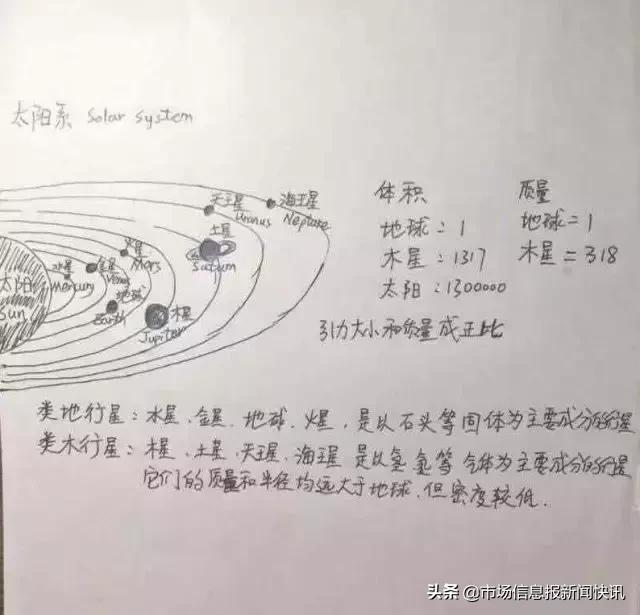 太阳系 Solar System
天王星 Uranus
海王星 Neptune
土星 Saturn
火星 Mars
水星 Mercury
金星 Venus
地球 Earth
木星 Jupiter
太阳 Sun
体积
地球:1
木星:1317
太阳:1300000
质量
地球=1
木星=318
引力大小和质量成正比
类地行星:水星、金星、地球、火星,是以石头等固体为主要成分的行星
类木行星:木星、土星、天王星、海王星 是以氢氦等气体为主要成分的行星
它们的质量和半径均远大于地球,但密度较低.
头条 @市场信息报新闻快讯